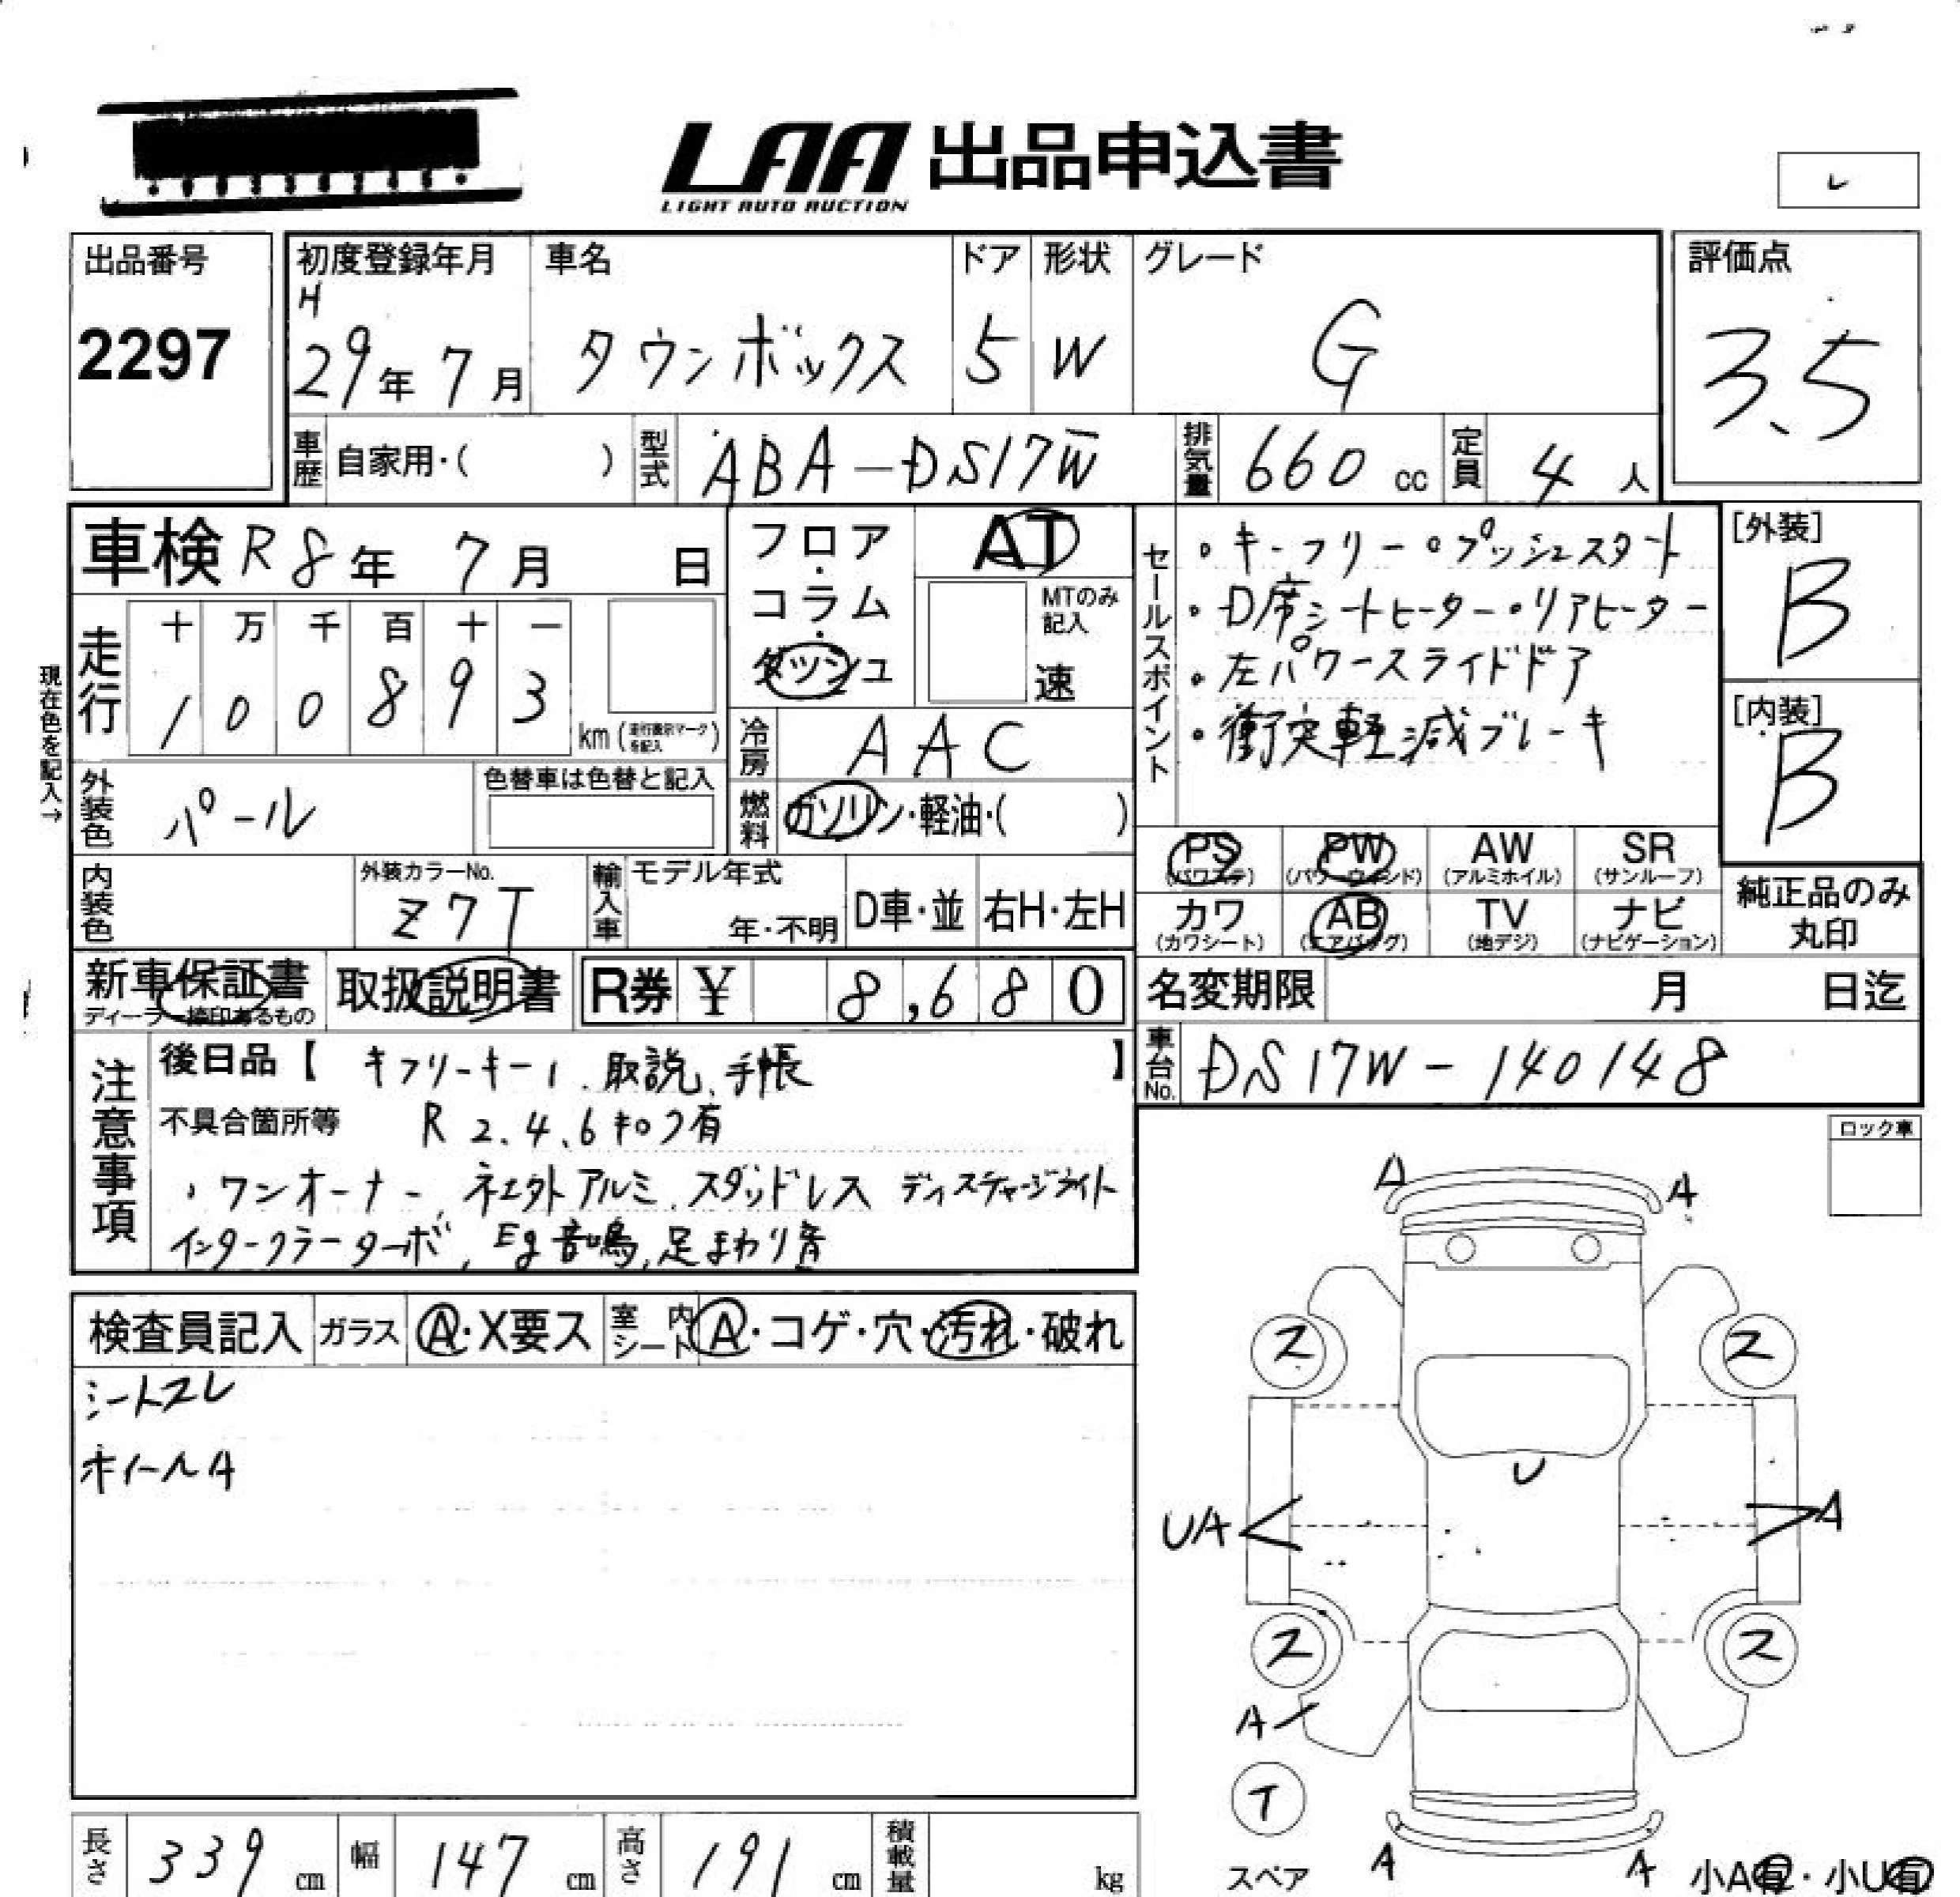 LAA 出品申込書
LIGHT AUTO AUCTION
レ
出品番号
2297
初度登録年月
H
29年 7月
車名
タウンボックス
ドア
5
形状
W
グレード
G
評価点
3.5
車歴 自家用・( )
型式 ABA-DS17W
排気量 660 cc
定員 4 人
車検 R8年 7月 日
フロア・コラム・ダッシュ
AT
MTのみ記入
速
現在色を記入→
走行 十 万 千 百 十 一
1 0 0 8 9 3 km (走行表示マークを記入)
冷房 AAC
燃料 ガソリン・軽油・( )
外装色 パール
色替車は色替と記入
内装色
外装カラーNo.
Z7T
輸入車 モデル年式
年・不明 D車・並 右H・左H
セールスポイント
・キーフリー・プッシュスタート
・D席シートヒーター・リアヒーター
・左パワースライドドア
・衝突軽減ブレーキ
[外装]
B
[内装]
B
PS (パワステ) PW (パワーウィンド) AW (アルミホイル) SR (サンルーフ)
カワ (カワシート) AB (エアバッグ) TV (地デジ) ナビ (ナビゲーション)
純正品のみ丸印
新車保証書 ディーラー捺印あるもの
取扱説明書
R券 ¥ 8,680
名変期限 月 日迄
車台No. DS17W-140148
注意事項
後日品【 キフリーキー1、取説、手帳 】
不具合箇所等 R 2、4、6キロク有
、ワンオーナー、社外アルミ、スタッドレス ディスチャージライト
インタークーラーターボ、Eg音鳴、足まわり音
ロック車
検査員記入 ガラス A・X要ス 室内シート A・コゲ・穴・汚れ・破れ
シートスレ
ホイールA
A A
ス ス
U
UA A
ス ス
A
T
スペア
A A
小A有・小U有
長さ 339 cm 幅 147 cm 高さ 191 cm 積載量 kg